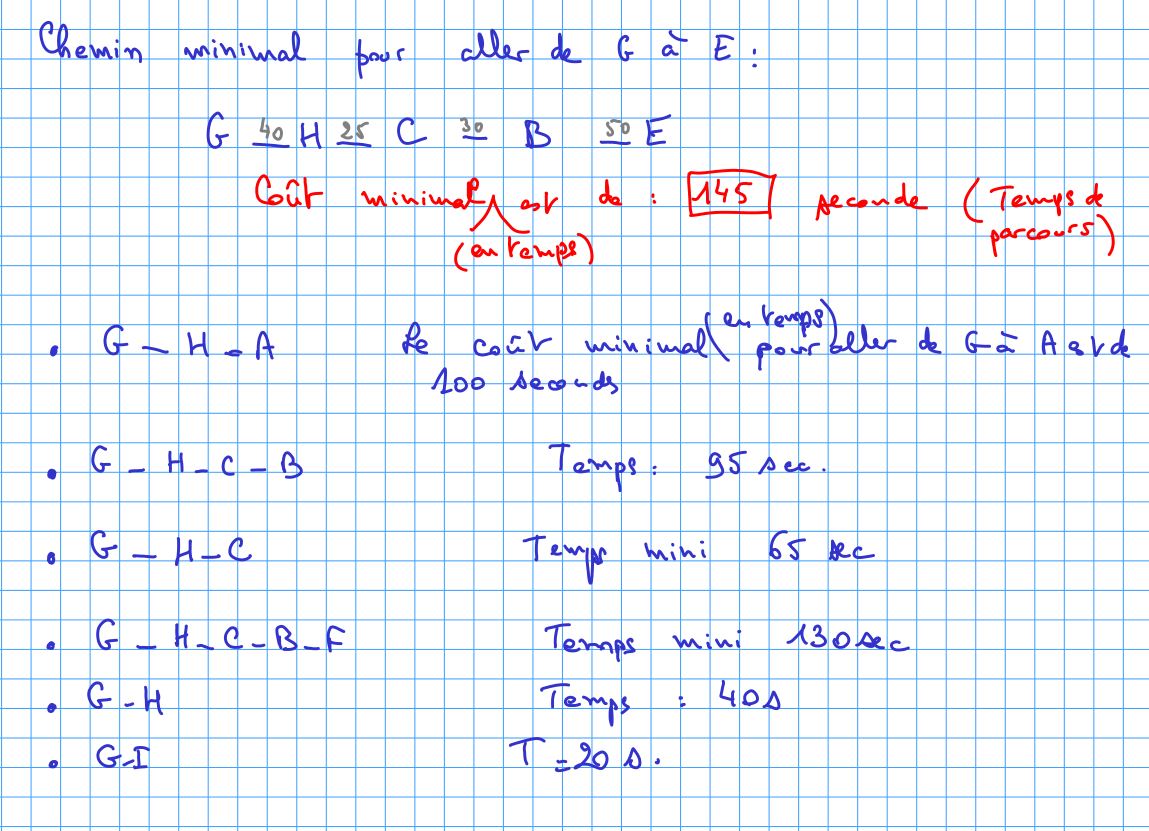 Chemin minimal pour aller de G à E :
G 40 H 25 C 30 B 50 E
Coût minimal est de : 145 seconde (Temps de
parcours)
(en temps)
• G - H - A Le coût minimal (en temps) pour aller de G à A est de
100 seconds
• G - H - C - B Temps : 95 sec.
• G - H - C Temps mini 65 sec
• G - H - C - B - F Temps mini 130 sec
• G - H Temps : 40 s
• G - I T = 20 s.